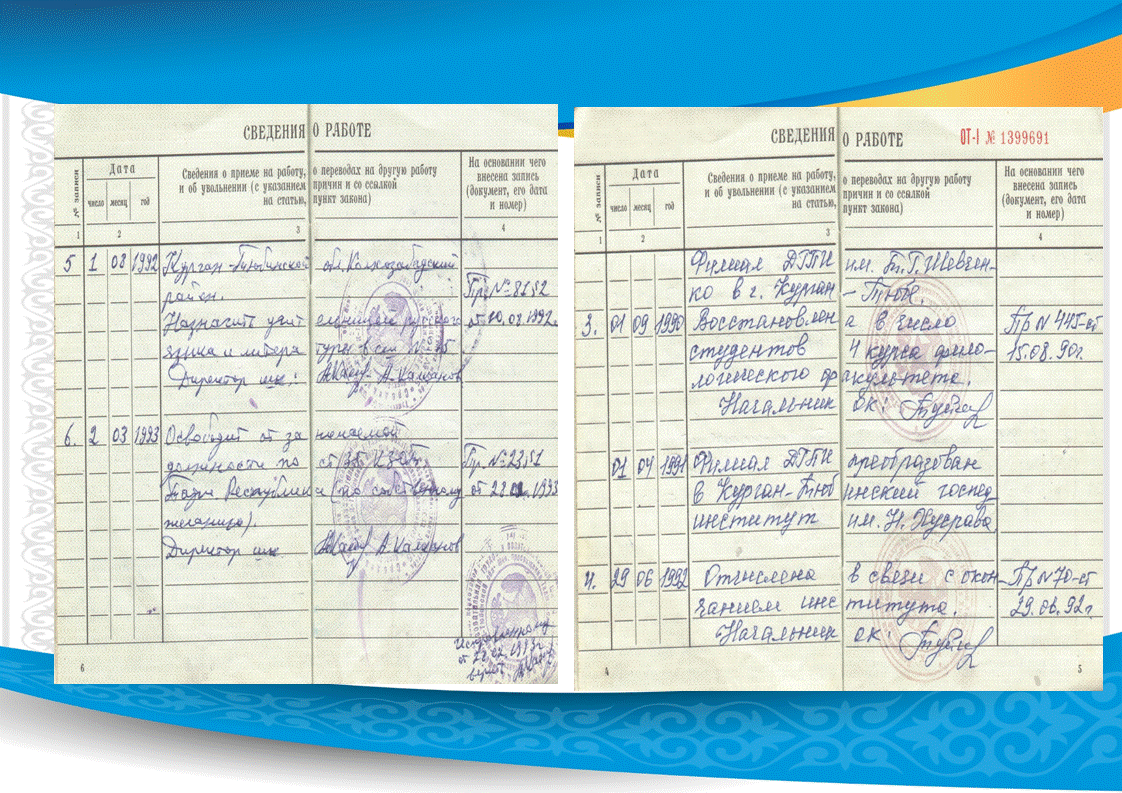 СВЕДЕНИЯ О РАБОТЕ
№ записи
Дата
число месяц год
Сведения о приеме на работу, о переводах на другую работу
и об увольнении (с указанием причин и со ссылкой
на статью, пункт закона)
На основании чего
внесена запись
(документ, его дата
и номер)
1 2 3 4
5 1 08 1992 Курган-Тюбинской обл. Колхозабадский
район. Пр. № 81§2
Назначить учительницей русского
языка и литературы в сш №
Директор шк:
6. 2 03 1993 Освободит от занимаемой
должности по ст 35 КЗОТ
Тадж Республики (по собственному
желанию).
Директор шк.
Исправленному
от 22.02.1993г
верит
6
СВЕДЕНИЯ О РАБОТЕ ОТ-I № 1399691
№ записи
Дата
число месяц год
Сведения о приеме на работу, о переводах на другую работу
и об увольнении (с указанием причин и со ссылкой
на статью, пункт закона)
На основании чего
внесена запись
(документ, его дата
и номер)
1 2 3 4
Филиал ДГПИ им. Т.Г. Шевчен-
ко в г. Курган-Тюбе.
3. 01 09 1990 Восстановлена в число Пр N 445-от
студентов 4 курса фило- 15.08.90г.
логического факультета.
Начальник ОК:
01 04 1991 Филиал ДГПИ преобразован
в Курган-Тюбинский госпед
институт им. Н. Хусрава.
4. 29 06 1992 Отчислена в связи с окон- Пр N 70-от
чанием института. 29.06.92г
Начальник ОК:
4 5